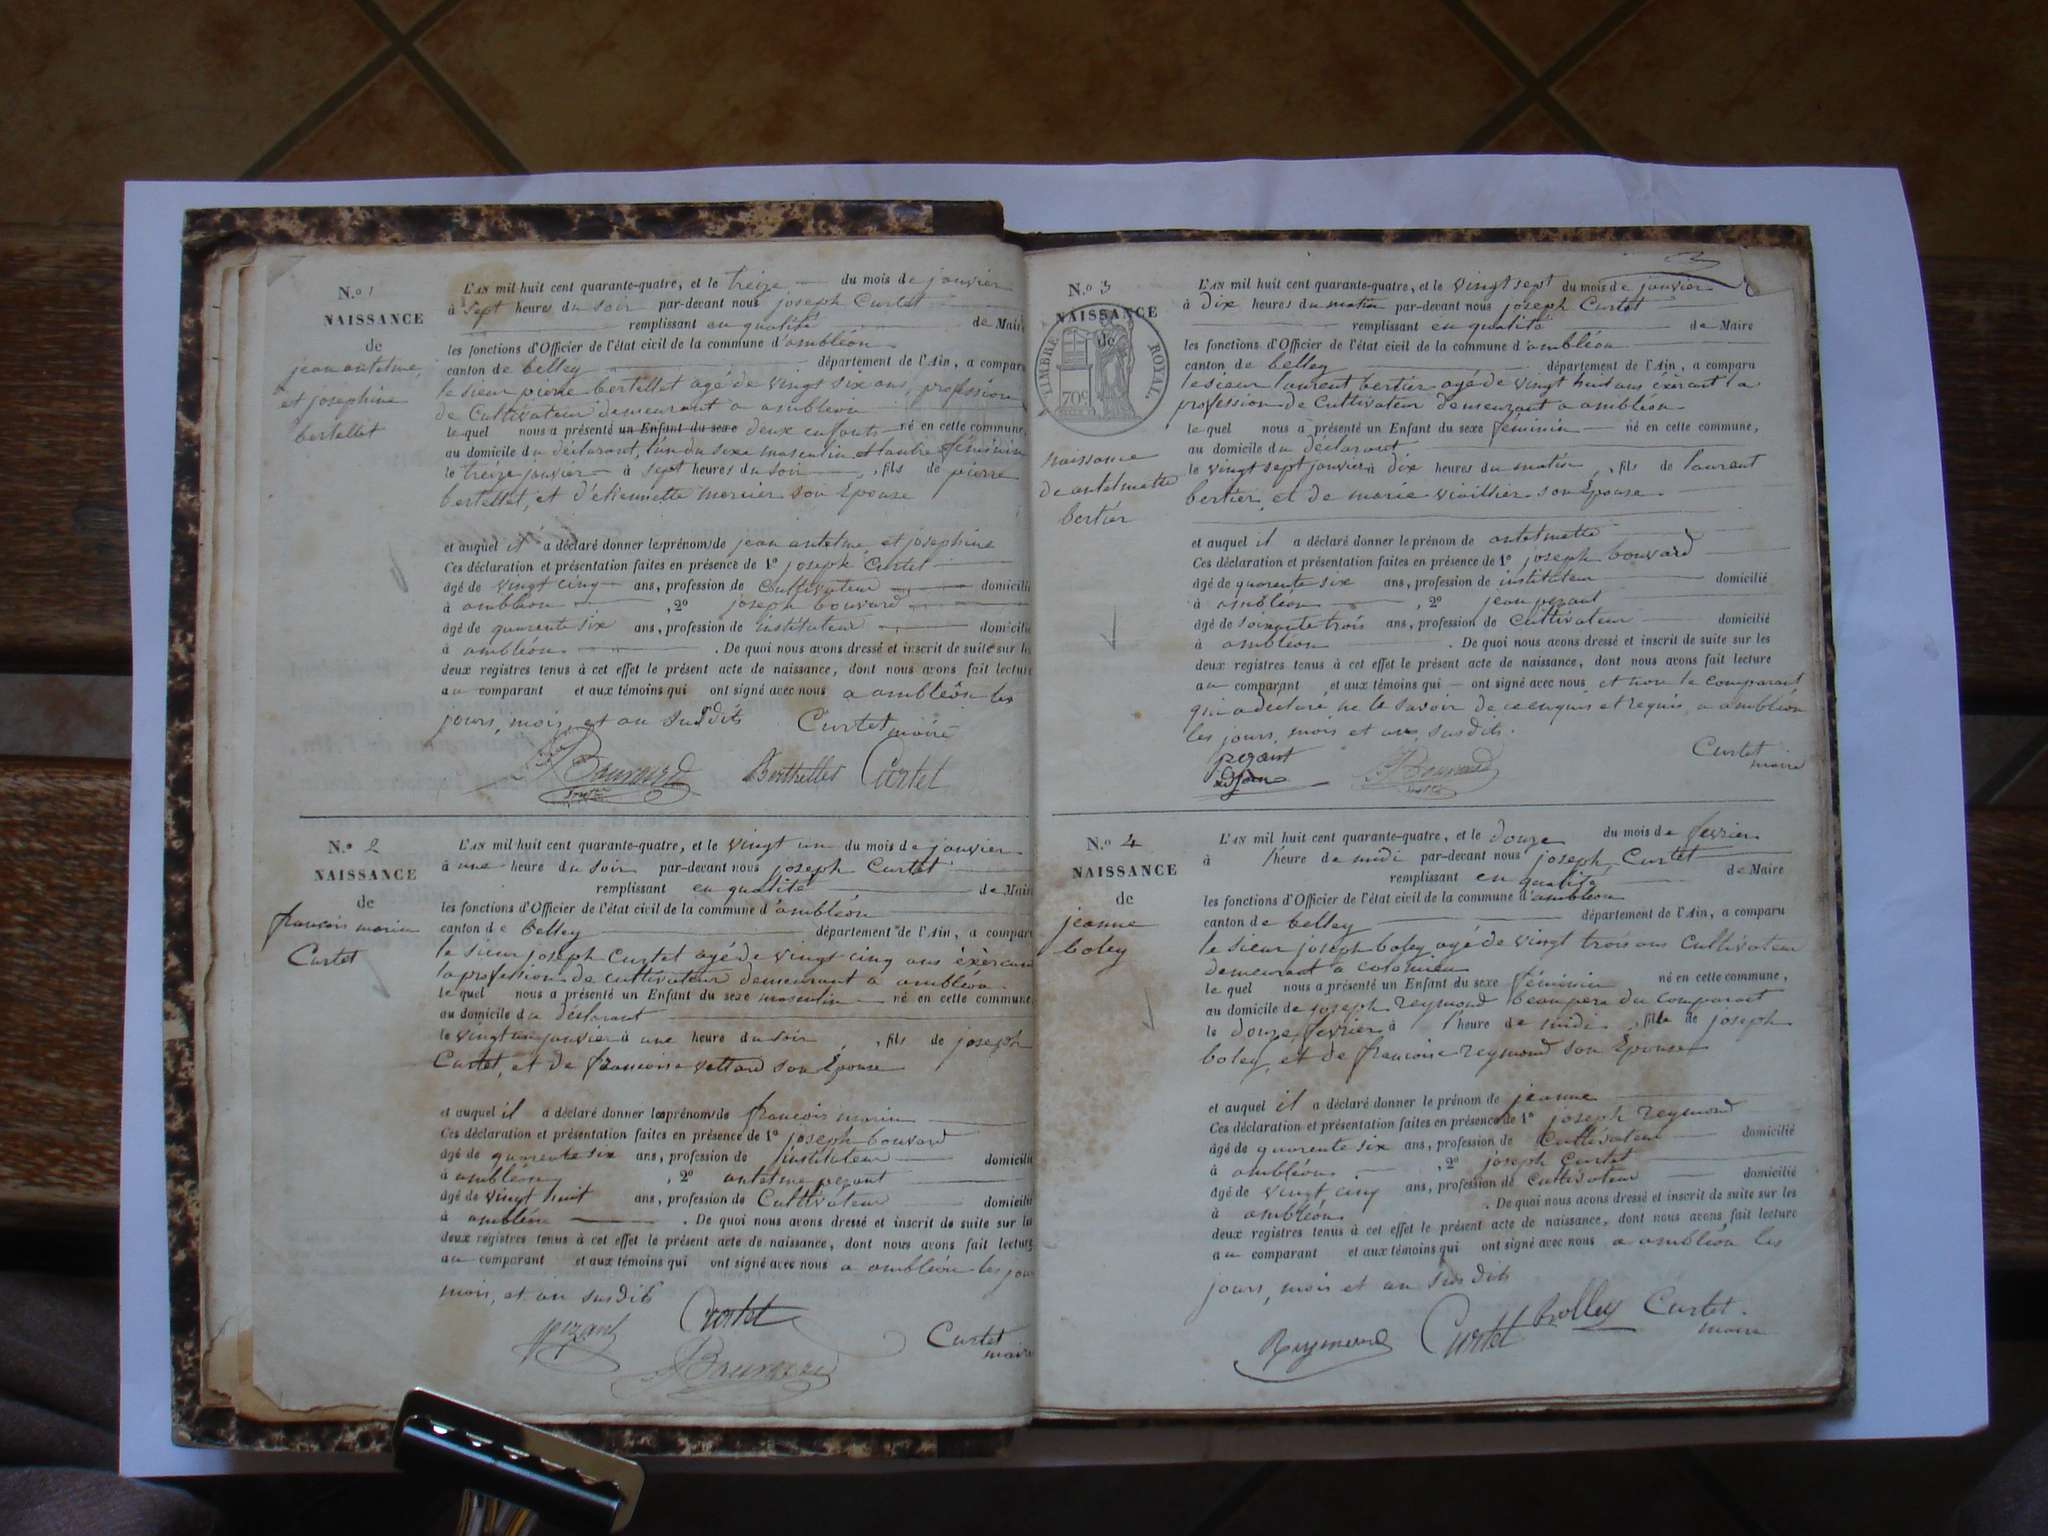 N.o 1
NAISSANCE
de
jean antelme
et josephine
bertellet
L'AN mil huit cent quarante-quatre, et le treize du mois de janvier
à sept heures du soir par-devant nous joseph Curtet
remplissant en qualité de Maire
les fonctions d'Officier de l'état civil de la commune d'ambléon
canton de belley département de l'Ain, a comparu
le sieur pierre bertellet agé de vingt six ans, profession
de Cultivateur demeurant a ambléon
le quel nous a présenté un Enfant du sexe deux enfants né en cette commune,
au domicile du déclarant, l'un du sexe masculin et l'autre féminin
le treize janvier à sept heures du soir, fils de pierre
bertellet, et d'étiennette mercier son Epouse
et auquel il a déclaré donner les prénoms de jean antelme et josephine
Ces déclaration et présentation faites en présence de 1o joseph Curtet
âgé de vingt cinq ans, profession de Cultivateur domicilié
à ambléon, 2o joseph bouvard
âgé de quarente six ans, profession de instituteur domicilié
à ambléon. De quoi nous avons dressé et inscrit de suite sur les
deux registres tenus à cet effet le présent acte de naissance, dont nous avons fait lecture
au comparant et aux témoins qui ont signé avec nous a ambléon les
jours, mois, et an susdits Curtet maire
Bouvard Berthellet Curtet
N.o 2
NAISSANCE
de
francois marin
Curtet
L'AN mil huit cent quarante-quatre, et le vingt un du mois de janvier
à une heure du soir par-devant nous joseph Curtet
remplissant en qualité de Maire
les fonctions d'Officier de l'état civil de la commune d'ambléon
canton de belley département de l'Ain, a comparu
le sieur joseph Curtet agé de vingt cinq ans éxèrcant
la profession de cultivateur demeurant a ambléon
le quel nous a présenté un Enfant du sexe masculin né en cette commune
au domicile du déclarant
le vingt un janvier à une heure du soir, fils de joseph
Curtet, et de francoise vettard son Epouse
et auquel il a déclaré donner les prénoms de francois marin
Ces déclaration et présentation faites en présence de 1o joseph bouvard
âgé de quarente six ans, profession de instituteur domicilié
à ambléon, 2o antelme pezant
âgé de vingt huit ans, profession de Cultivateur domicilié
à ambléon. De quoi nous avons dressé et inscrit de suite sur les
deux registres tenus à cet effet le présent acte de naissance, dont nous avons fait lecture
au comparant et aux témoins qui ont signé avec nous a ambléon les jour
mois, et an susdits
pezant Curtet
Bouvard
Curtet
maire
N.o 3
NAISSANCE
de
TIMBRE ROYAL
70c
Naissance
de antelmette
bertier
L'AN mil huit cent quarante-quatre, et le vingt sept du mois de janvier
à dix heures du matin par-devant nous joseph Curtet
remplissant en qualité de Maire
les fonctions d'Officier de l'état civil de la commune d'ambléon
canton de belley département de l'Ain, a comparu
le sieur laurent bertier agé de vingt huit ans éxèrcant la
profession de Cultivateur demeurant a ambléon
le quel nous a présenté un Enfant du sexe féminin né en cette commune,
au domicile du déclarant
le vingt sept janvier à dix heures du matin, fils de laurent
bertier, et de marie vieillier son Epouse
et auquel il a déclaré donner le prénom de antelmette
Ces déclaration et présentation faites en présence de 1o joseph bouvard
âgé de quarente six ans, profession de instituteur domicilié
à ambléon, 2o jean pezant
âgé de soixante trois ans, profession de Cultivateur domicilié
à ambléon. De quoi nous avons dressé et inscrit de suite sur les
deux registres tenus à cet effet le présent acte de naissance, dont nous avons fait lecture
au comparant et aux témoins qui ont signé avec nous et non le comparant
qui a déclaré ne le savoir de ce enquis et requis, a ambléon
les jours, mois et an, susdits.
pezant
jean
Bouvard
Curtet
maire
N.o 4
NAISSANCE
de
jeanne
boley
L'AN mil huit cent quarante-quatre, et le douze du mois de fevrier
à l'heure de midi par-devant nous joseph Curtet
remplissant en qualité de Maire
les fonctions d'Officier de l'état civil de la commune d'ambléon
canton de belley département de l'Ain, a comparu
le sieur joseph boley agé de vingt trois ans Cultivateur
demeurant a colomieu
le quel nous a présenté un Enfant du sexe féminin né en cette commune,
au domicile de joseph reymond beaupere du comparant
le douze fevrier à l'heure de midi, fille de joseph
boley, et de francoise reymond son Epouse
et auquel il a déclaré donner le prénom de jeanne
Ces déclaration et présentation faites en présence de 1o joseph reymond
âgé de quarente six ans, profession de Cultivateur domicilié
à ambléon, 2o joseph Curtet
âgé de vingt cinq ans, profession de Cultivateur domicilié
à ambléon. De quoi nous avons dressé et inscrit de suite sur les
deux registres tenus à cet effet le présent acte de naissance, dont nous avons fait lecture
au comparant et aux témoins qui ont signé avec nous a ambléon les
jours, mois et an susdits
Reymond Curtet Bolley Curtet
maire